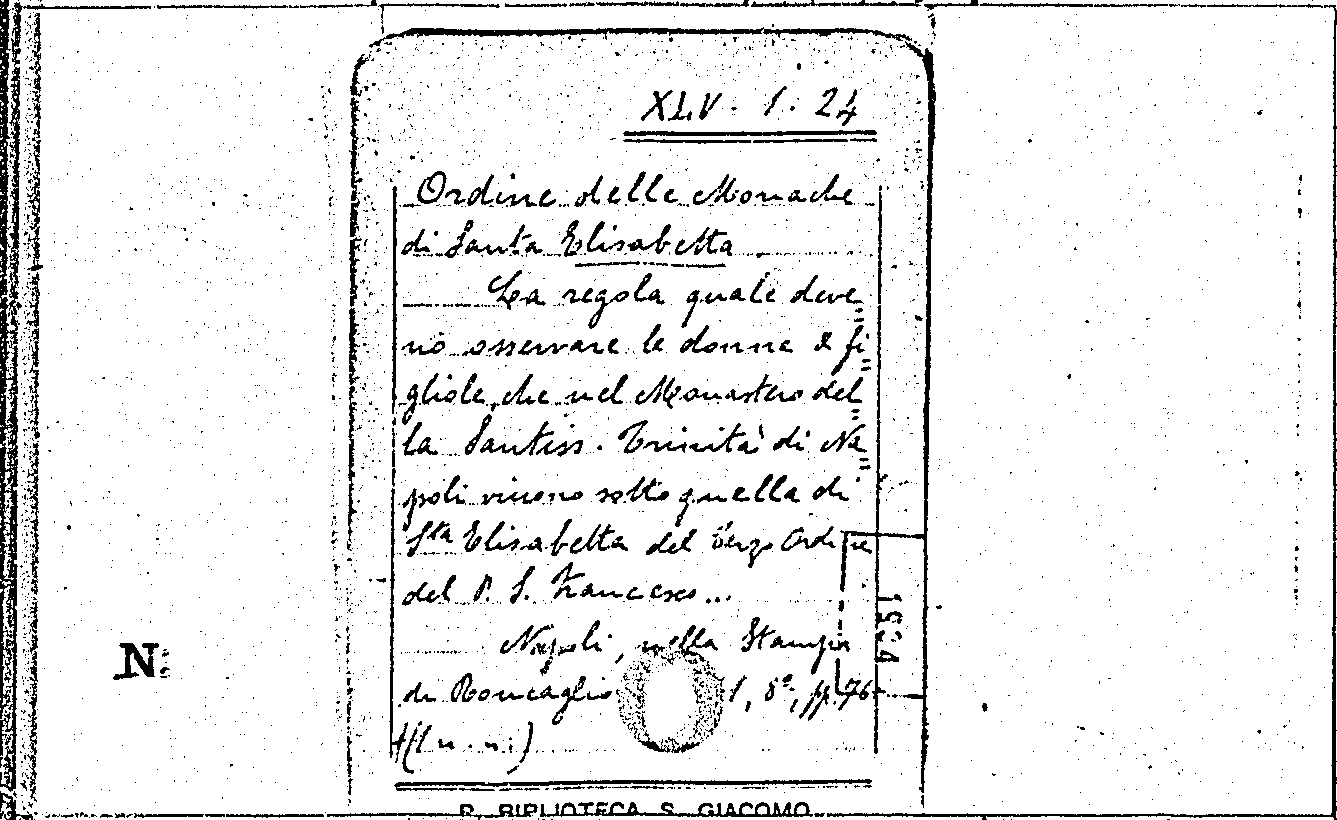 XLV. 1. 24
Ordine delle Monache
di Santa Elisabetta
La regola quale deve=
no osservare le donne e fi=
gliole, che nel Monastero del=
la Santiss. Trinità di Na=
poli vivono sotto quella di
Sta Elisabetta del Terzo Ordine
del P. S. Francesco...
Napoli, nella Stampa
di Roncaglio 1, 8º, pp. 76
(n. n.)
1934
N:
R. BIBLIOTECA S. GIACOMO